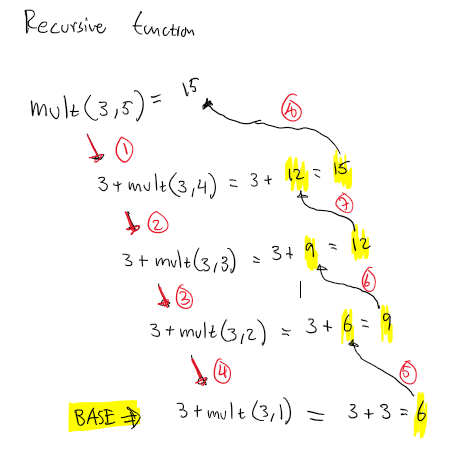 Recursive function
mult(3,5) = 15
⑧
①
3 + mult(3,4) = 3 + 12 = 15
②
⑦
3 + mult(3,3) = 3 + 9 = 12
③
⑥
3 + mult(3,2) = 3 + 6 = 9
④
⑤
BASE ⇒ 3 + mult(3,1) = 3 + 3 = 6